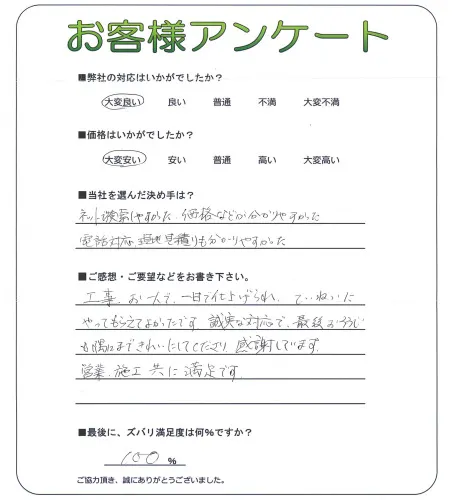 お客様アンケート
■弊社の対応はいかがでしたか？
大変良い 良い 普通 不満 大変不満
■価格はいかがでしたか？
大変安い 安い 普通 高い 大変高い
■当社を選んだ決め手は？
ネット検索しやすかった 価格などが分かりやすかった
電話対応、現地見積りも分かりやすかった
■ご感想・ご要望などをお書き下さい。
工事、お一人で、一日で仕上げられ、ていねいに
やってもらえてよかったです。誠実な対応で、最後のそうじ
も隅々まできれいにしてくださり、感謝しています。
営業、施工 共に 満足です。
■最後に、ズバリ満足度は何%ですか？
100 %
ご協力頂き、誠にありがとうございました。